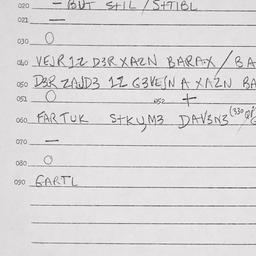 020 — BUT StIL / S+TIBL
021 —
030 O
040 VEJR 1Z D3R XAZN BARA-X / BA
050 D3R ZAJD3 1Z G3VESN A XAZN BA
051 O 052 +
060 FARTUK StKUM3 DAVSN3 (330
070 —
080 O
090 GARTL